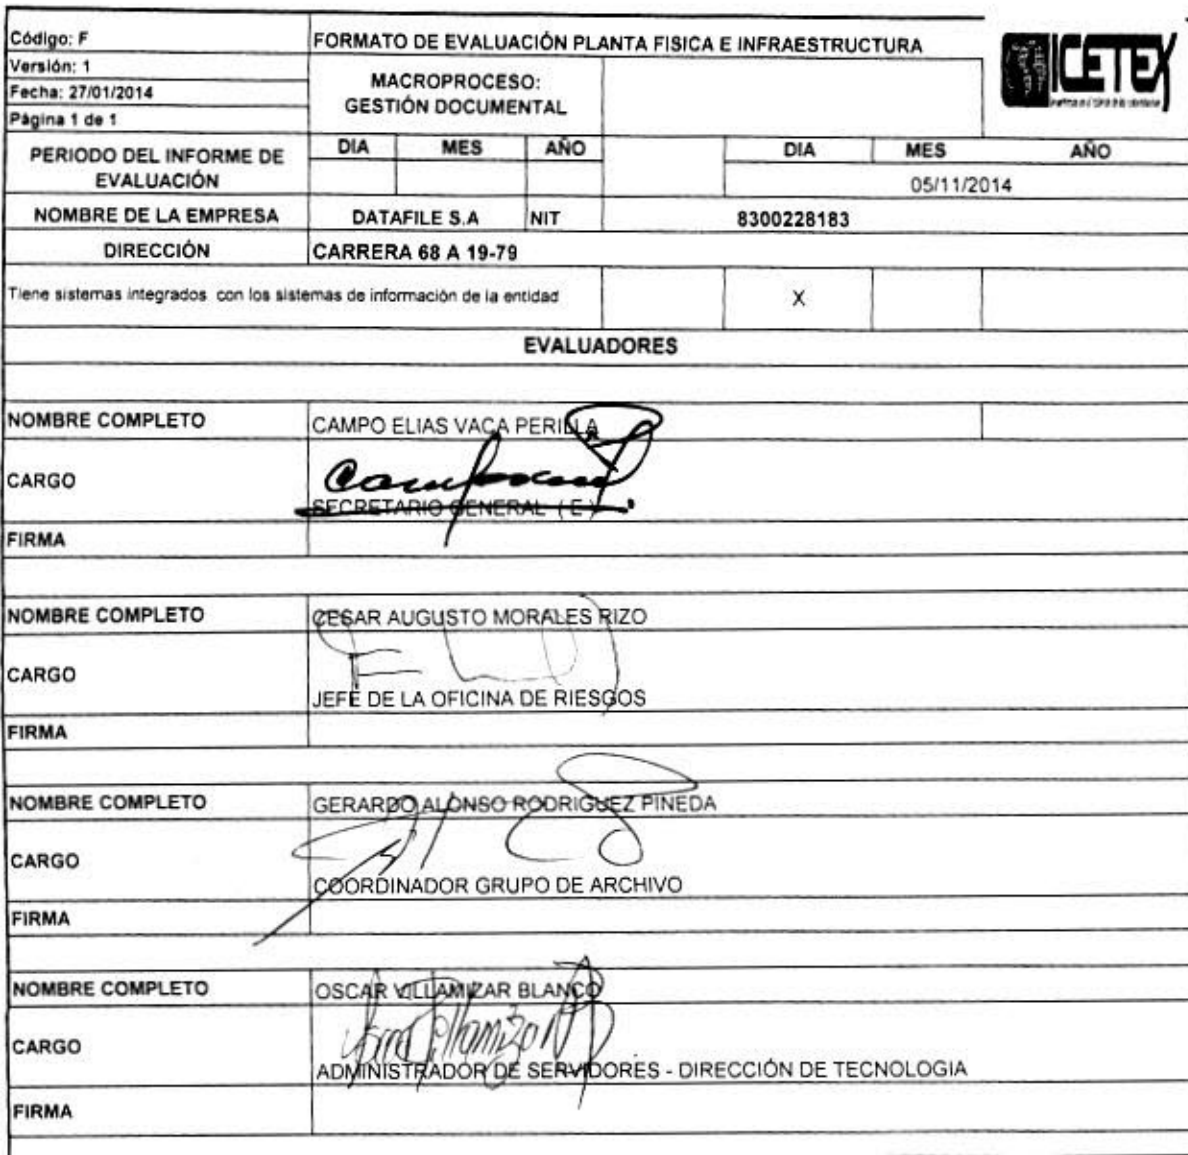 Código: F
FORMATO DE EVALUACIÓN PLANTA FISICA E INFRAESTRUCTURA
ICETEX
Versión: 1
Fecha: 27/01/2014
Página 1 de 1
MACROPROCESO:
GESTIÓN DOCUMENTAL
PERIODO DEL INFORME DE
EVALUACIÓN
DIA MES AÑO DIA MES AÑO
05/11/2014
NOMBRE DE LA EMPRESA DATAFILE S.A NIT 8300228183
DIRECCIÓN CARRERA 68 A 19-79
Tiene sistemas integrados con los sistemas de información de la entidad X
EVALUADORES
NOMBRE COMPLETO CAMPO ELIAS VACA PERILLA
CARGO SECRETARIO GENERAL ( E )
FIRMA
NOMBRE COMPLETO CESAR AUGUSTO MORALES RIZO
CARGO JEFE DE LA OFICINA DE RIESGOS
FIRMA
NOMBRE COMPLETO GERARDO ALONSO RODRIGUEZ PINEDA
CARGO COORDINADOR GRUPO DE ARCHIVO
FIRMA
NOMBRE COMPLETO OSCAR VILLAMIZAR BLANCO
CARGO ADMINISTRADOR DE SERVIDORES - DIRECCIÓN DE TECNOLOGIA
FIRMA